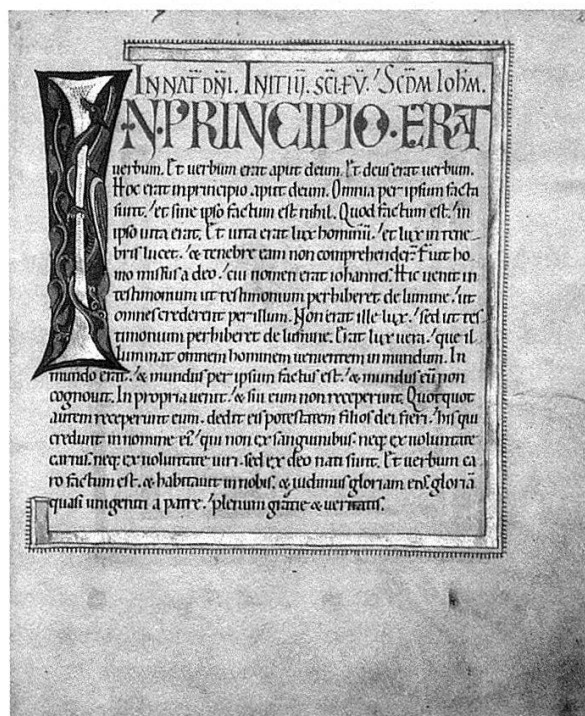 IN NAT̄ DN̄I. INITIŪ. SC̄I. EV̄. SCD̄M IOH̄M.
IN·PRINCIPIO·ERAT
verbum. Et verbum erat aput deum. Et deus erat verbum.
Hoc erat in principio aput deum. Omnia per ipsum facta
sunt. et sine ipso factum est nihil. Quod factum est. in
ipso vita erat. Et vita erat lux hominū. et lux in tene-
bris lucet. & tenebre eam non comprehender̄. Fuit ho
mo missus a deo. cui nomen erat iohannes. Hic venit in
testimonium ut testimonium perhiberet de lumine. ut
omnes crederent per illum. Non erat ille lux. sed ut tes
timonium perhiberet de lumine. Erat lux vera. que il
luminat omnem hominem venientem in mundum. In
mundo erat. & mundus per ipsum factus est. & mundus eū non
cognovit. In propria venit. & sui eum non receperunt. Quotquot
autem receperunt eum. dedit eis potestatem filios dei fieri. his qui
credunt in nomine ei'. qui non ex sanguinibus. neq; ex voluntate
carnis. neq; ex voluntate viri. sed ex deo nati sunt. Et verbum ca
ro factum est. & habitavit in nobis. & vidimus gloriam eius. gloriā
quasi unigeniti a patre. plenum gratie & veritatis.